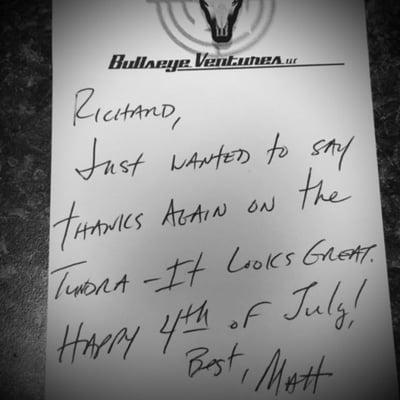 Bullseye Ventures LLC
Richard,
Just wanted to say
thanks again on the
Tundra - It looks great.
Happy 4th of July!
Best, Matt